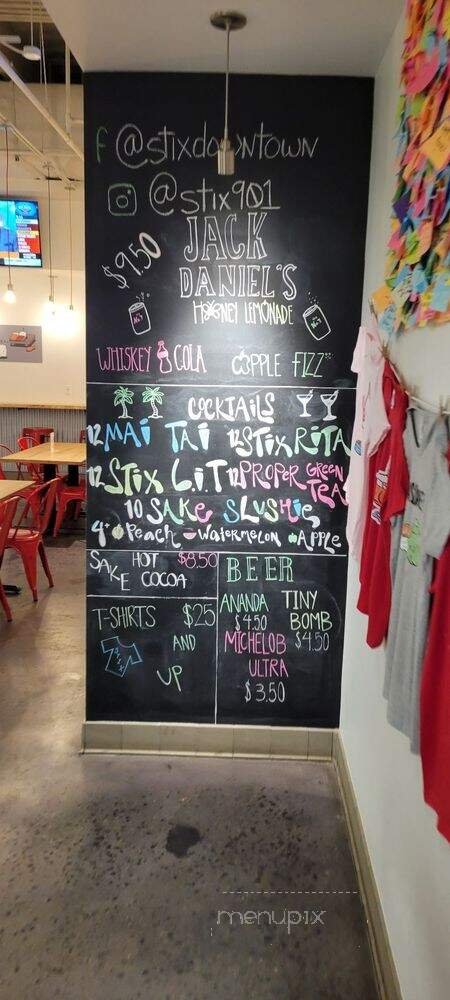 f @stixdowntown
@stix901
$9.50
JACK
DANIEL'S
HONEY LEMONADE
WHISKEY & COLA APPLE FIZZ
COCKTAILS
12 MAI TAI 12 STIXRITA
12 STIX L.I.T 12 PROPER GREEN TEA
10 SAKE SLUSHIE
4+ Peach - Watermelon Apple
SAKE HOT COCOA $8.50
BEER
ANANDA $4.50
TINY BOMB $4.50
MICHELOB ULTRA
$3.50
T-SHIRTS $25
AND
UP
menupix